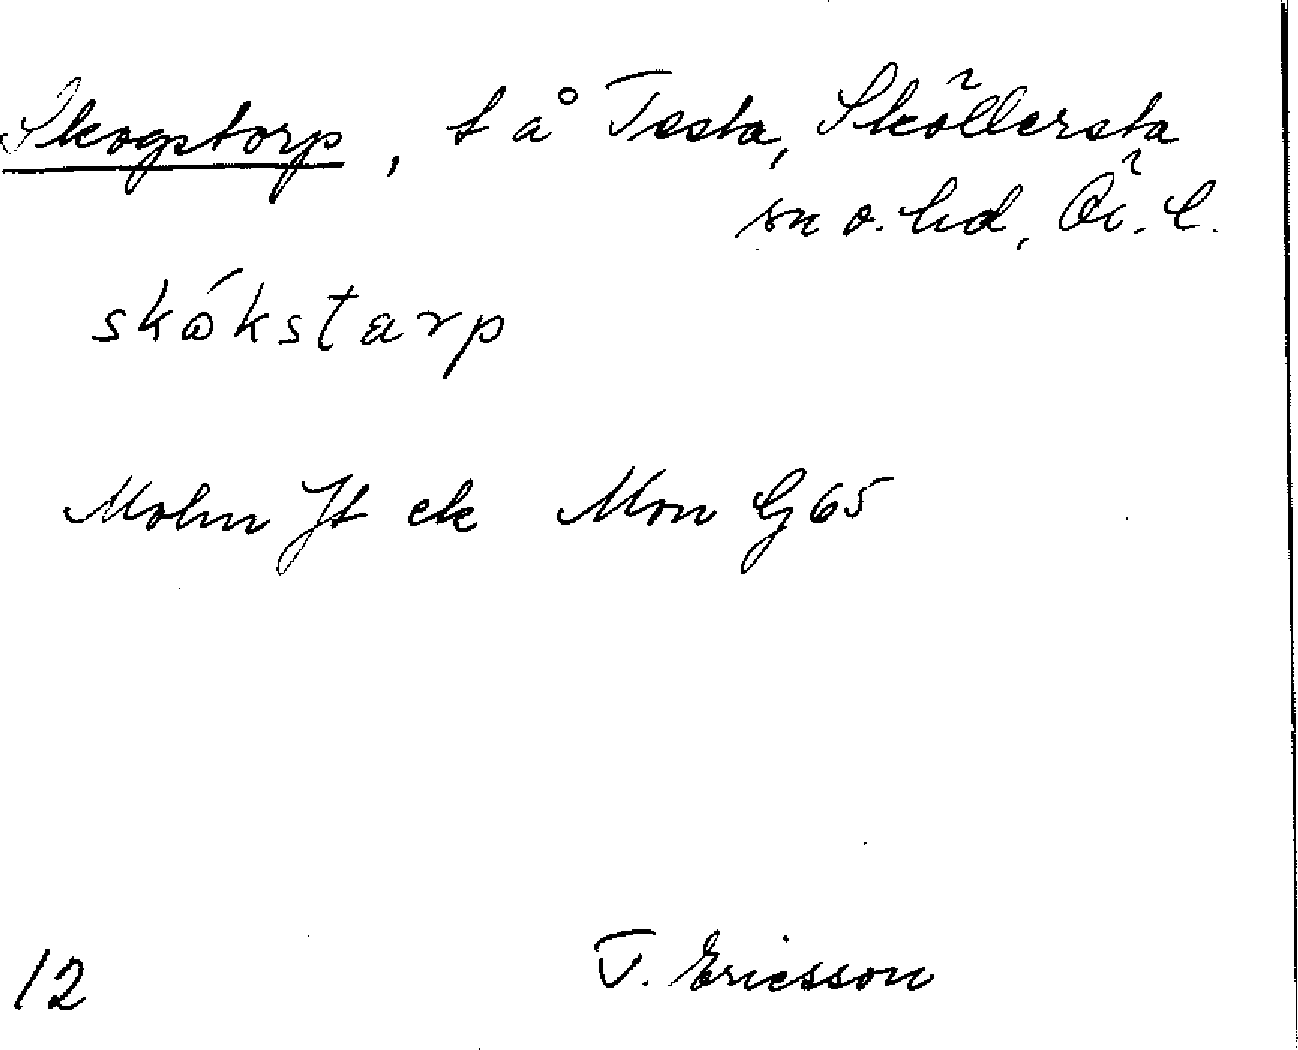 Skogstorp, t å Testa, Sköllersta
sn o. hd, Ör. l.
skókstarp
Molin Jt ek Mon G 65
12
T. Ericsson